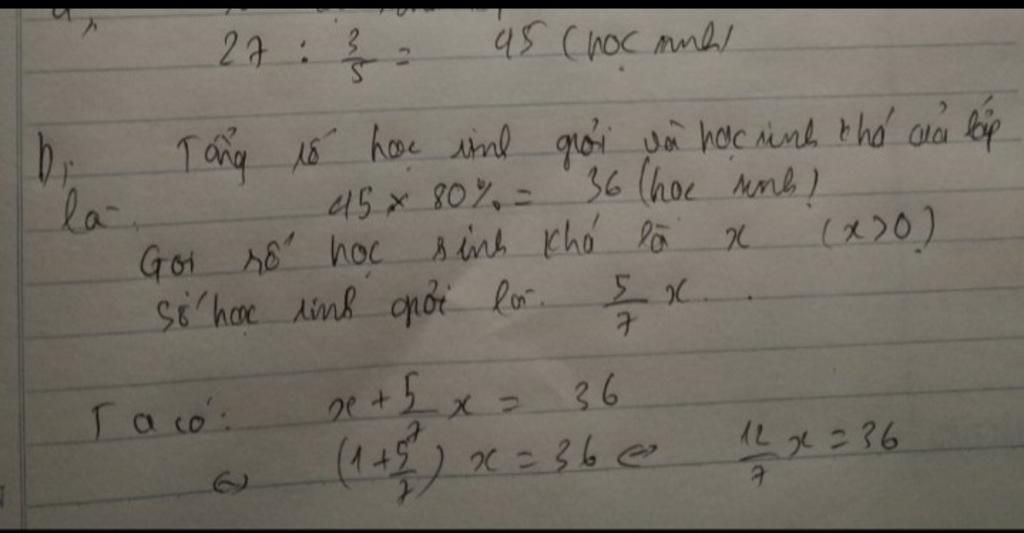 a,
27 : 3/5 = 45 (học sinh)
b, Tổng số học sinh giỏi và học sinh khá của lớp
là 45 × 80% = 36 (học sinh)
Gọi số học sinh khá là x (x>0)
Số học sinh giỏi là 5/7 x.
Ta có: x + 5/7 x = 36
⇔ (1 + 5/7) x = 36 ⇔ 12/7 x = 36